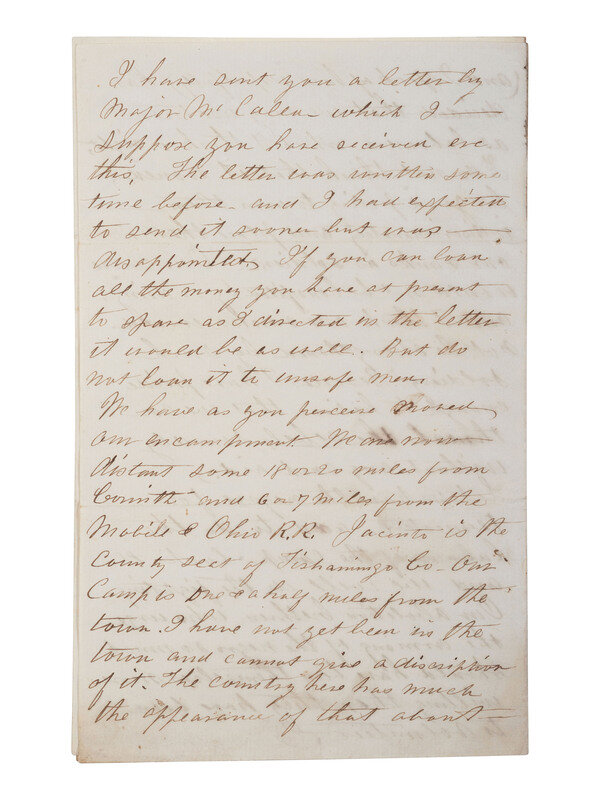 I have sent you a letter by
Major Mc Calla - which I —
suppose you have received ere
this. The letter was written some
time before - and I had expected
to send it sooner but was —
disappointed. If you can loan
all the money you have at present
to spare as I directed in the letter
it would be as well. But do
not loan it to unsafe men.
We have as you perceive moved
our encampment. We are now
distant some 18 or 20 miles from
Corinth and 6 or 7 miles from the
Mobile & Ohio R.R. Jacinto is the
County seat of Tishamingo Co - Our
Camp is one & a half miles from the
town. I have not yet been in the
town and cannot give a discription
of it. The country here has much
the appearance of that about —